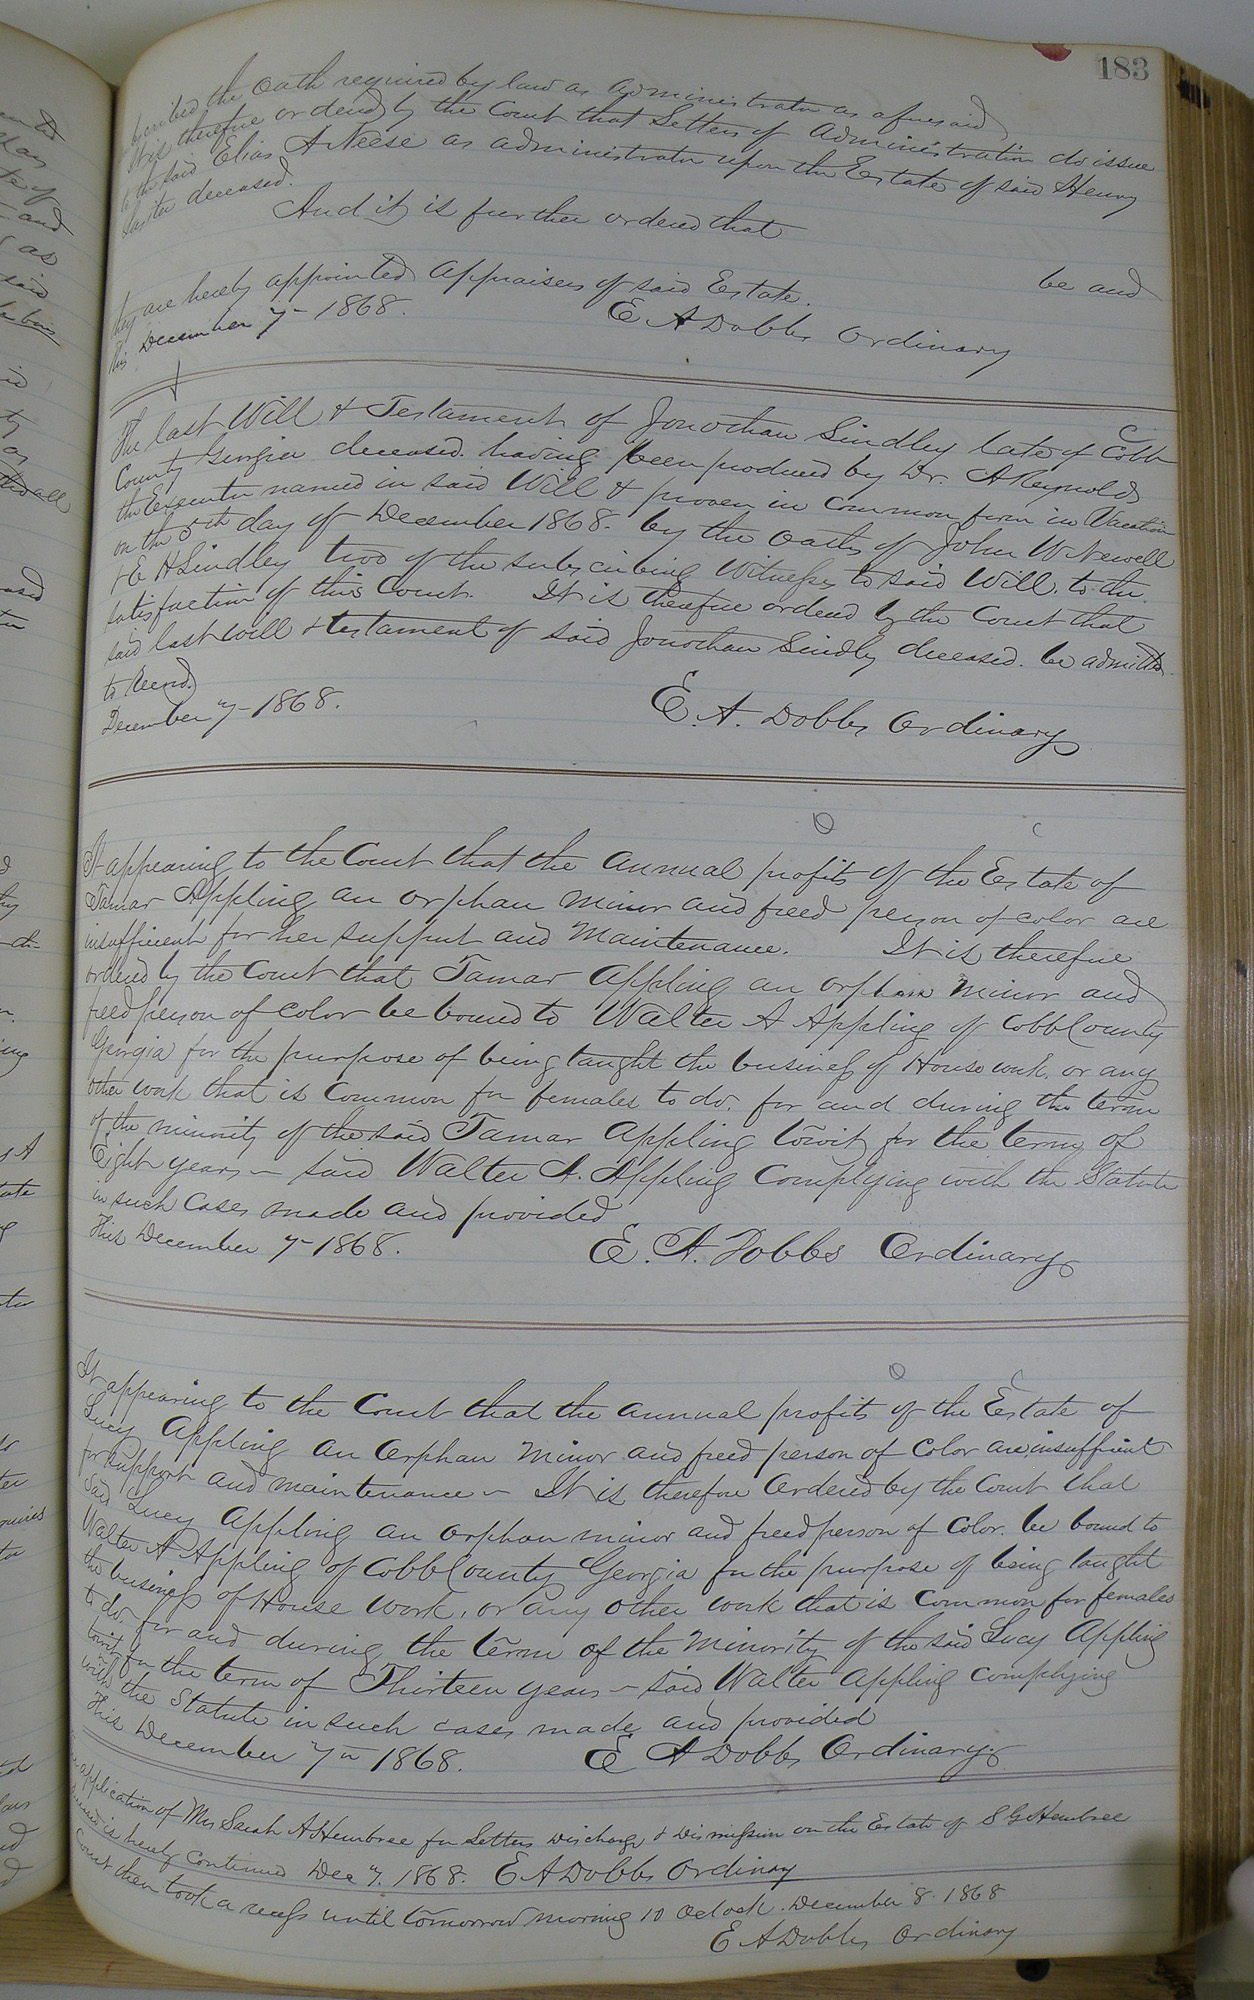 183
scribed the oath required by law as administrator as aforesaid
It is therefore ordered by the Court that Letters of Administration do issue
to the said Elias A Neese as administrator upon the Estate of said Henry
deceased.
And it is further ordered that
be and
they are hereby appointed appraisers of said Estate.
This December 7- 1868. E A Dobbs Ordinary
The last Will & Testament of Jonothan Lindley late of Cobb
County Georgia deceased. having been produced by Dr. A Reynolds
the Executor named in said Will & proven in Common form in Vacation
on the 5th day of December 1868. by the oaths of John W Newell
& E H Lindley two of the subscribing Witnesses to said Will. to the
satisfaction of this Court. It is therefore ordered by the Court that
said last will & testament of said Jonothan Lindly deceased. be admitted
to Record.
December 7- 1868. E. A. Dobbs Ordinary
It appearing to the Court that the annual profits of the Estate of
Tamar Appling an orphan minor and freed person of color are
insufficient for her support and maintenance. It is therefore
ordered by the Court that Tamar Appling an orphan minor and
freed person of color be bound to Walter A Appling of Cobb County
Georgia for the purpose of being taught the business of House work. or any
other work that is common for females to do. for and during the term
of the minority of the said Tamar Appling towit for the term of
Eight years – said Walter A. Appling Complying with the Statute
in such cases made and provided
This December 7- 1868. E. A. Dobbs Ordinary
It appearing to the Court that the annual profits of the Estate of
Lucy Appling an Orphan minor and freed person of Color are insufficient
for support and maintenance – It is therefore Ordered by the Court that
said Lucy Appling an orphan minor and freed person of Color. be bound to
Walter A Appling of Cobb County Georgia for the purpose of being taught
the business of House work, or any other work that is common for females
to do, for and during the term of the Minority of the said Lucy Appling
towit for the term of Thirteen years – said Walter Appling complying
with the Statute in such cases made and provided
This December 7th 1868. E A Dobbs Ordinary
application of Mrs Sarah A Hembree for Letters Discharge & Dismission on the Estate of S G Hembree
deceased is hereby continued Dec 7. 1868. E A Dobbs Ordinary
Court then took a recess until tomorrow morning 10 Oclock. December 8. 1868
E A Dobbs Ordinary